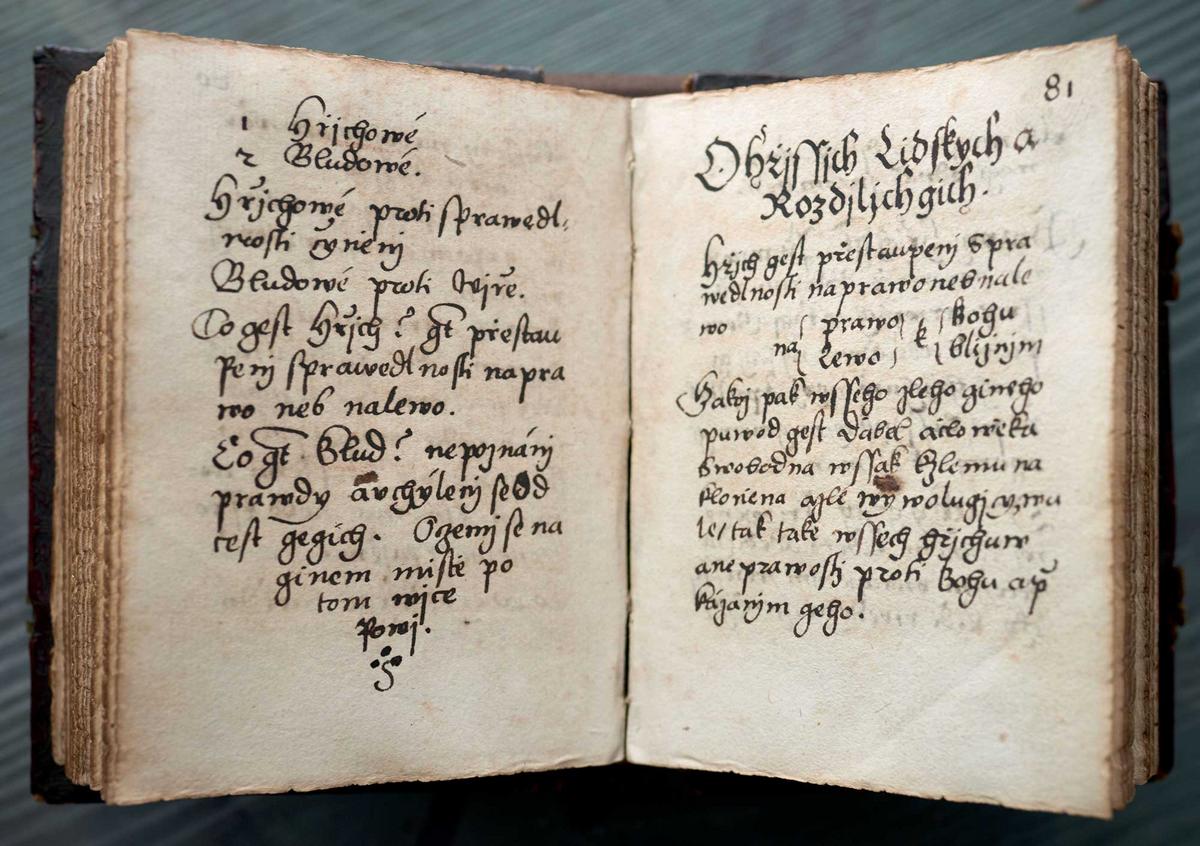 1 Hřjchowé
2 Bludowé.
Hřjchowé proti sprawedl,
nosti cyneni
Bludowé proti Wjře.
Co gest Hřjch? gt přestau
peni sprawedlnosti napra
wo neb nalewo.
Co gt Blud? nepoznánj
prawdy a vchýlenj se Od
cest gegich. O czemž se na
ginem mistě po
tom wjce
Powj.
81
O hřjssjch Lidskych a
Rozdjljch gich.
Hřjch gest přestaupenj Spra
wedlnosti naprawo neb nale
wo
na prawo k Bohu
Lewo bližnjm
Gakož pak wsseho zleho gineho
puwod gest Ďábel a člowěka
Swobodna wssak kzlemu na
kloněna a zle wywolugjcý wu
le / tak také wssech hřjchuw
a neprawostj proti Bohu a př
kázanjm geho.